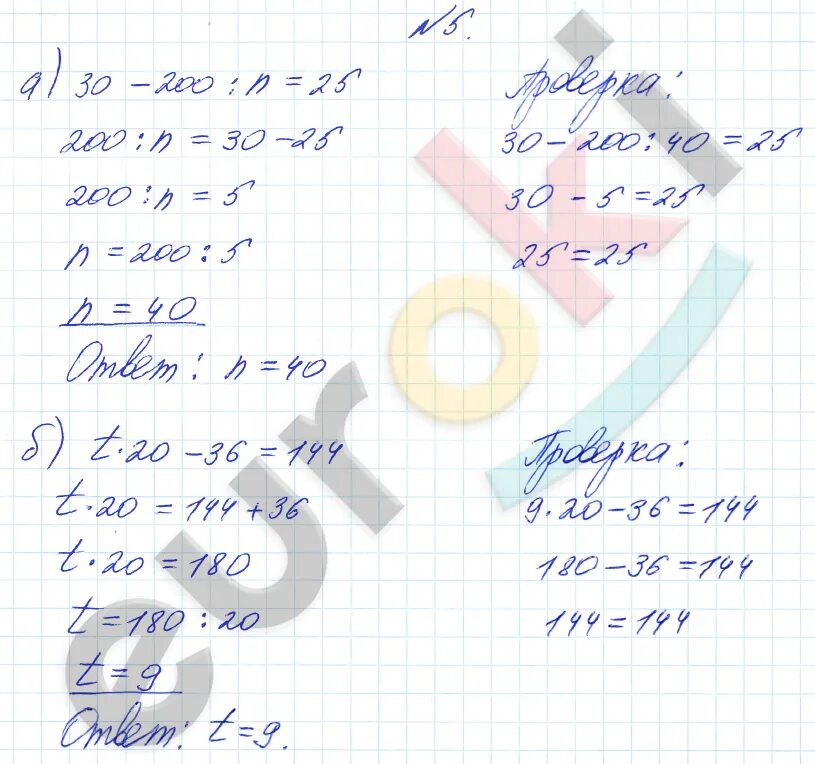 №5.
а) 30 – 200 : n = 25
200 : n = 30 – 25
200 : n = 5
n = 200 : 5
n = 40
Ответ: n = 40
Проверка:
30 – 200 : 40 = 25
30 – 5 = 25
25 = 25
б) t · 20 – 36 = 144
t · 20 = 144 + 36
t · 20 = 180
t = 180 : 20
t = 9
Ответ: t = 9.
Проверка:
9 · 20 – 36 = 144
180 – 36 = 144
144 = 144
euroki